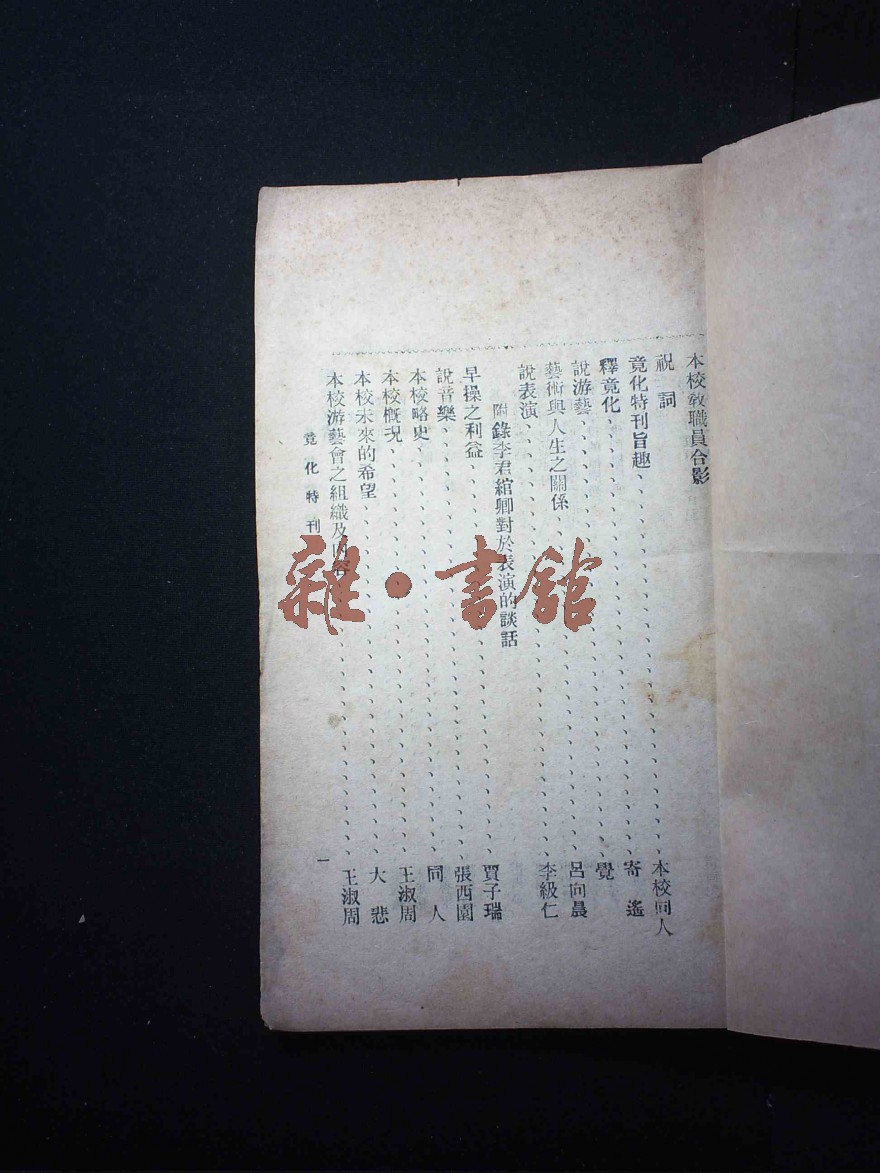 本校教職員合影
祝詞
竟化特刊旨趣、、、、、、、、、、、、、、、、本校同人
釋竟化、、、、、、、、、、、、、、、、、、寄遙
說游藝、、、、、、、、、、、、、、、、、、覺
藝術與人生之關係、、、、、、、、、、、、、、呂向晨
說表演、、、、、、、、、、、、、、、、、、李級仁
附錄李君綰卿對於表演的談話
早操之利益、、、、、、、、、、、、、、、、賈子瑞
說音樂、、、、、、、、、、、、、、、、、、張西園
本校略史、、、、、、、、、、、、、、、、、同人
本校概況、、、、、、、、、、、、、、、、、王淑周
本校未來的希望、、、、、、、、、、、、、、、大悲
本校游藝會之組織及內容、、、、、、、、、、、王淑周
竟化特刊
一
雜·書館